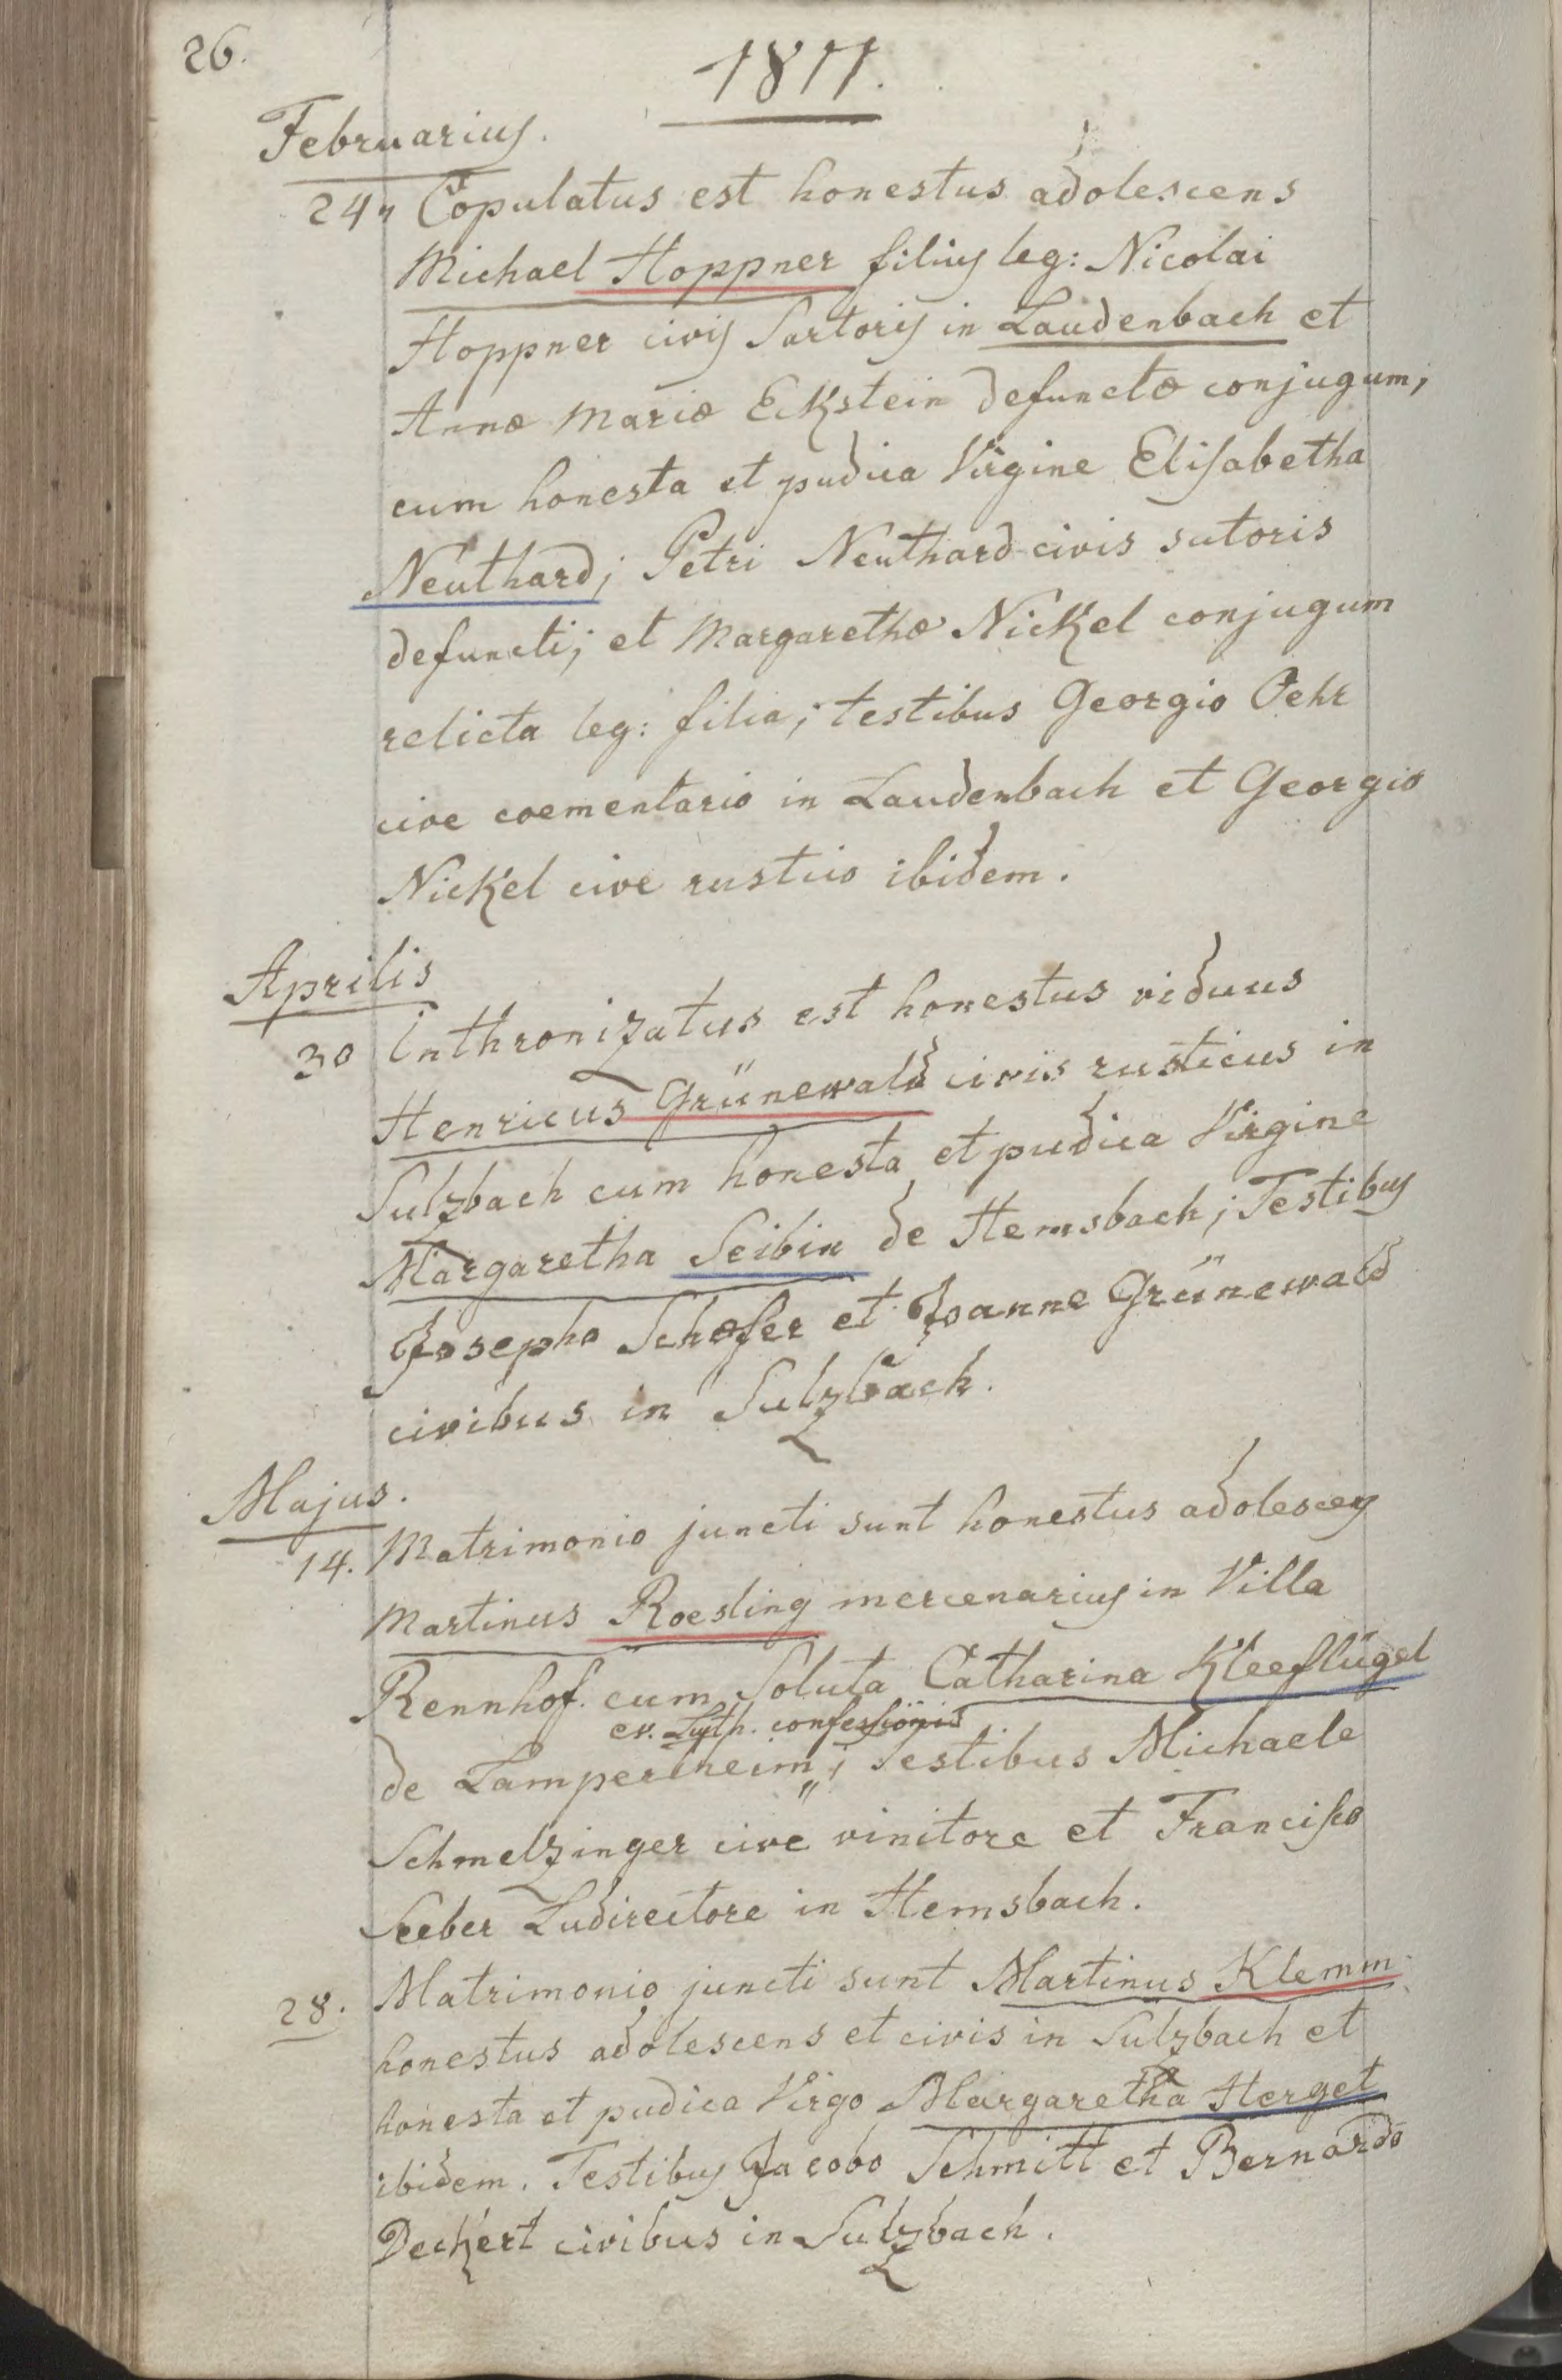 26.
1811.
Februarius.
24 Copulatus est honestus adolescens
Michael Hoppner filius leg: Nicolai
Hoppner civis Sartoris in Laudenbach et
Annæ Mariæ Eckstein defunctæ conjugum,
cum honesta et pudica Virgine Elisabetha
Neuthard; Petri Neuthard civis sutoris
defuncti; et Margarethæ Nickel conjugum
relicta leg: filia; testibus Georgio Oehr
cive coementario in Laudenbach et Georgio
Nickel cive rustico ibidem.
Aprilis
30 Inthronizatus est honestus viduus
Henricus Grünewald civis rusticus in
Sulzbach cum honesta et pudica Virgine
Margaretha Seibin de Hemsbach; Testibus
Josepho Schæfer et Joanne Grünewald
civibus in Sulzbach.
Majus.
14. Matrimonio juncti sunt honestus adolescens
Martinus Roesling mercenarius in Villa
Rennhof. cum Soluta Catharina Kleeflügel
ev. Luth. confessionis
de Lampertheim; Testibus Michaele
Schmelzinger cive vinitore et Francisco
Seeber Ludirectore in Hemsbach.
28. Matrimonio juncti sunt Martinus Klemm
honestus adolescens et civis in Sulzbach et
honesta et pudica Virgo Margaretha Herget
ibidem. Testibus Jacobo Schmitt et Bernardo
Deckert civibus in Sulzbach.